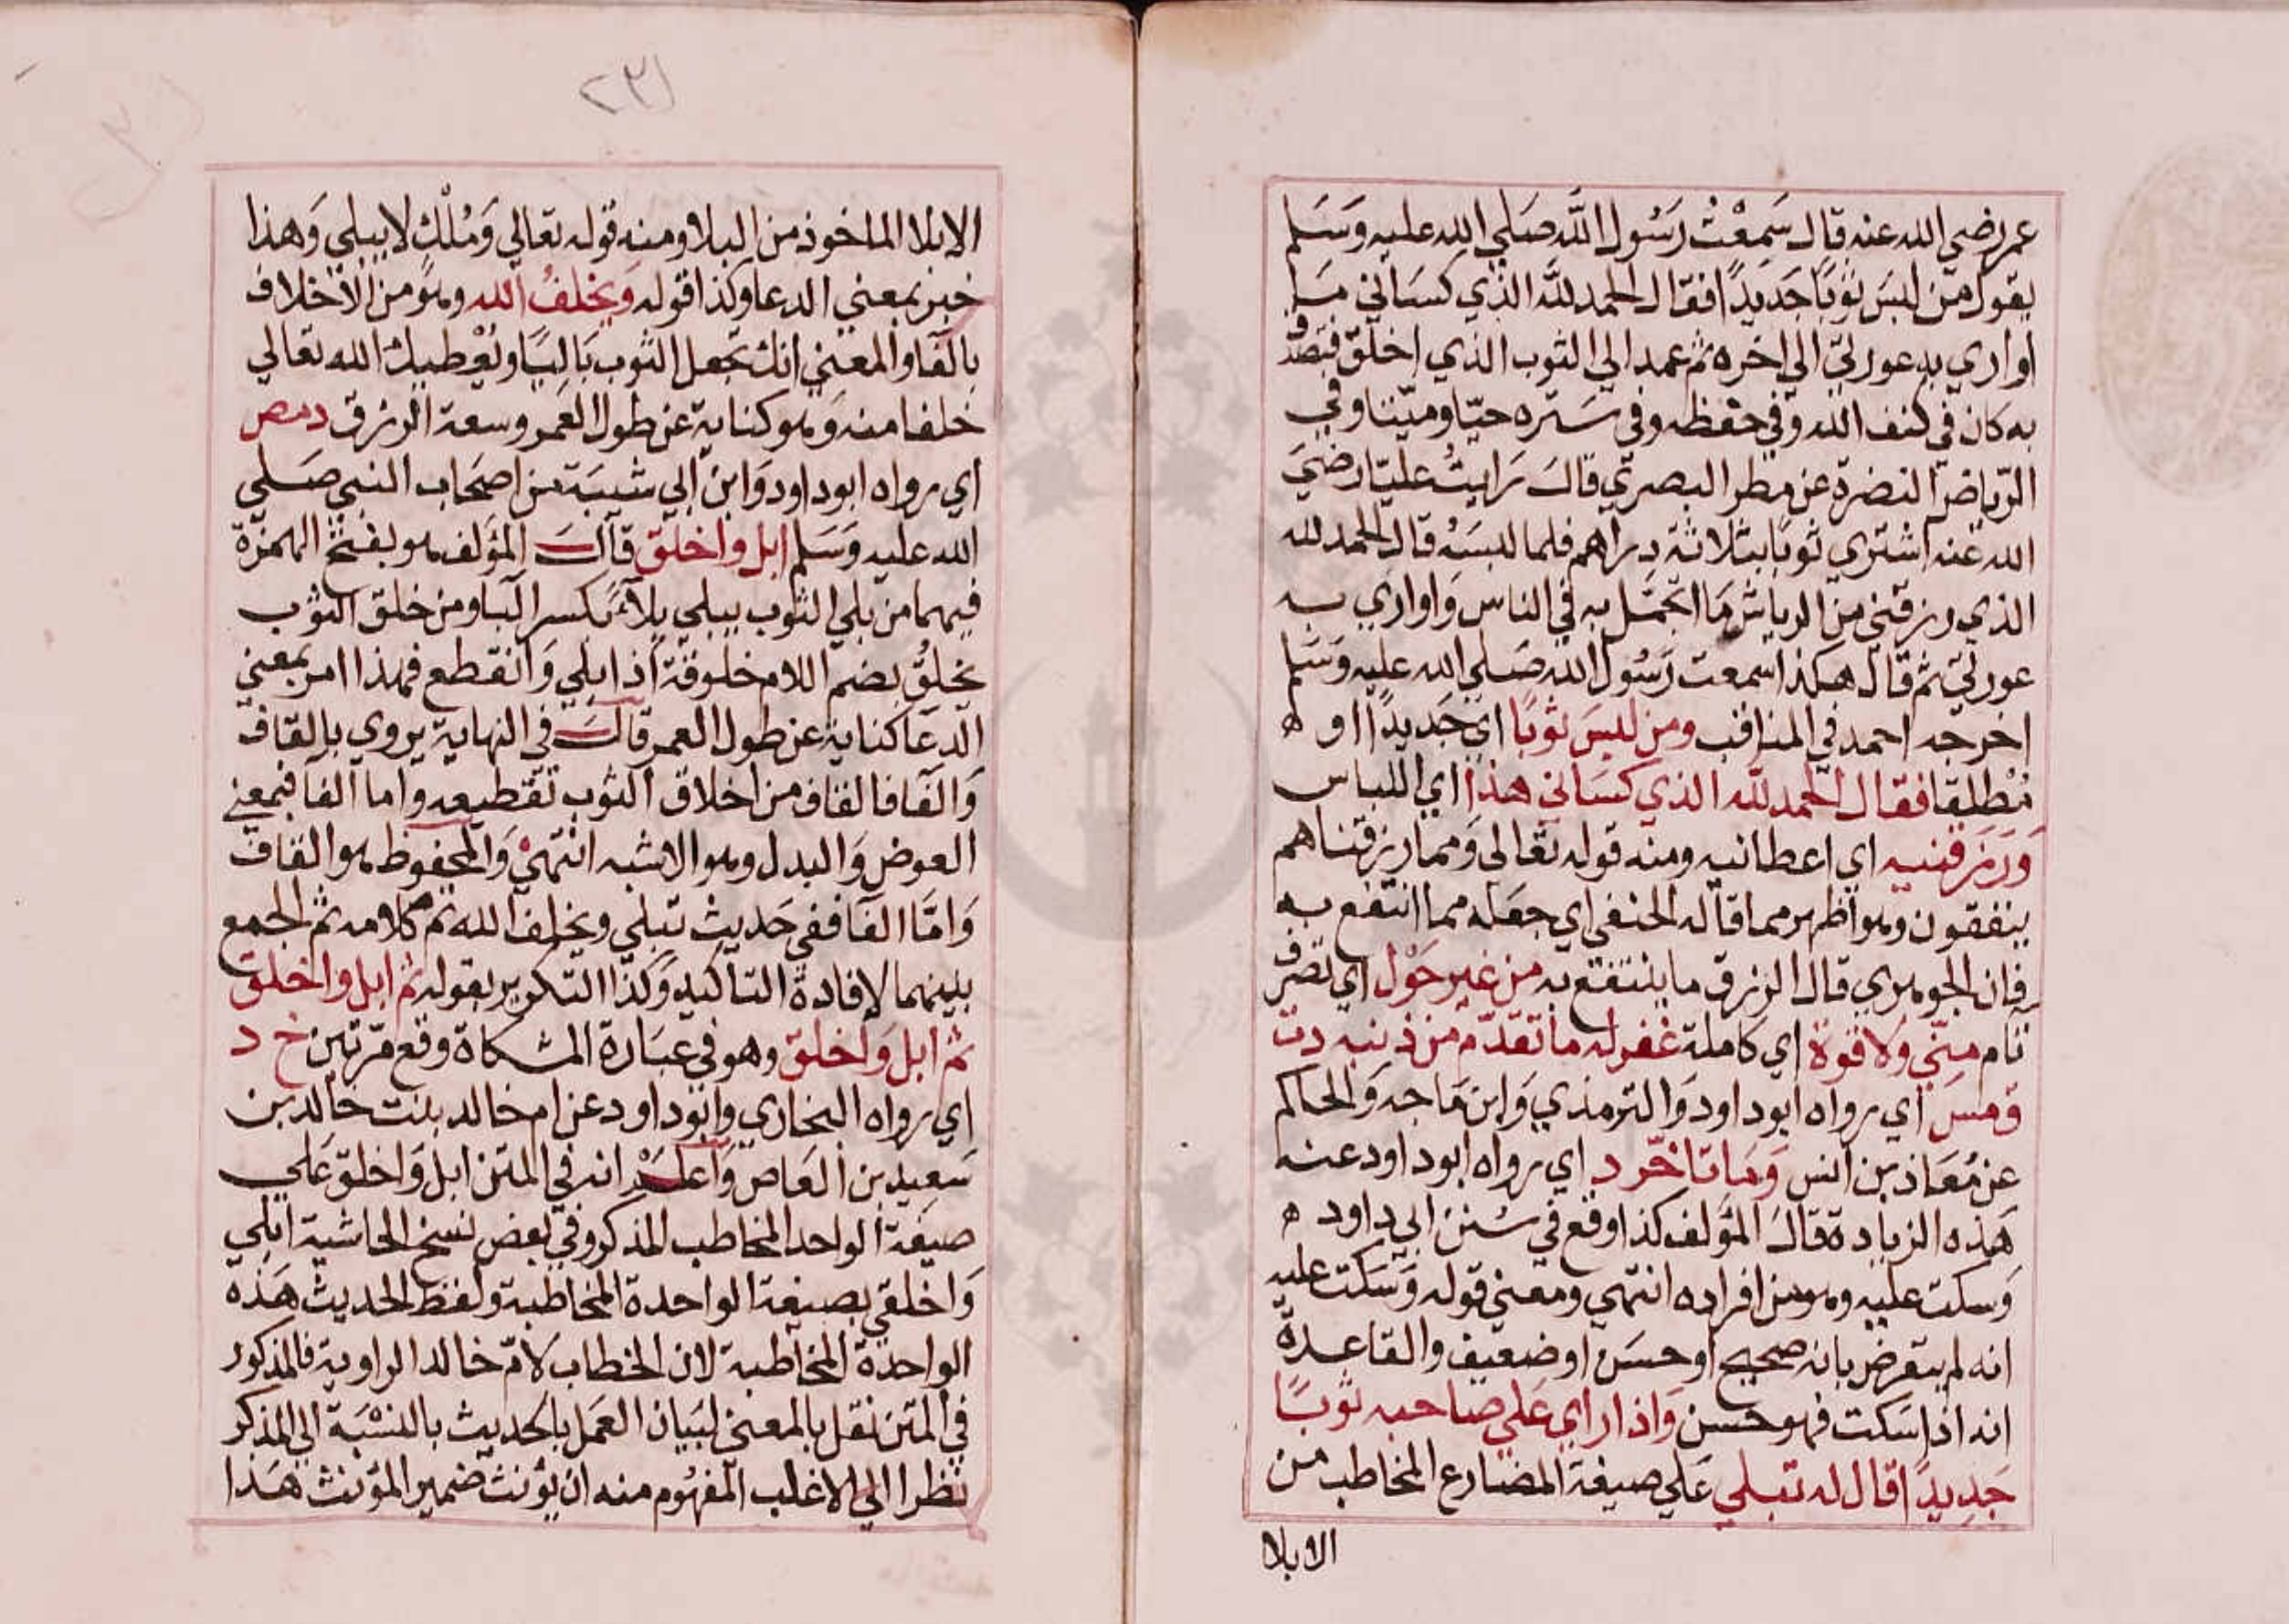 عمر رضي الله عنه قال سَمِعْتُ رَسُول اللَّه صَلي الله عليه وَسَلم
يقول من لبسَ ثوبًا جَديدًا فقال الحمد للَّه الذي كسَاني مَا
اواري به عورتي الي اخره ثم عمد الي الثوب الذي اخلق فتصدق
به كان في كنف الله وفي حفظه وفي سَتره حيّا وميّتا وفي
الرّياض النضرة عن مطر البصري قال رايتُ عليّا رضيَ
الله عنه اشتري ثوبًا بثلاثة دراهم فلما لبسَهُ قال الحمد لله
الذي رزقني من الرياش مَا اتجمّل به في الناس وَاواري به
عورتي ثم قال هكذا سمعت رَسُول الله صَلي الله عليه وَسَلم
اخرجه احمد في المناقب ومن لبسَ ثوبًا اي جَديدًا او ه
مُطلقا فقال الحمد للَّه الذي كسَاني هذا اي اللباس
وَرَزقنيه اي اعطانيه ومنه قوله تعَالى وَمما رزقناهم
ينفقون وهو اظهر مما قاله الحنفي اي جعله مما انتفع به
فان الجوهري قال الرزق ما ينتفع به من غير حَوْل اي تصرف
تام منّي ولا قوة اي كاملة غفر له ما تقدّم من ذنبه دت
ق مس اي رواه ابو داود وَالترمذي وَابن مَاجه وَالحاكم
عن مُعَاذ بن انس وَمَا تاخّر د اي رواه ابو داود عنه
هَذه الزيادة قالَ المؤلف كذا وقع في سُنن ابي داود ه
وَسكت عليه وهو من افراده انتهي ومعني قوله وَسَكت عليه
انه لم يتعرض بانه صحيح او حسَن او ضعيف والقاعدةُ
انه اذا سَكت فهو حسن وَاذا راي عَلي صاحبه ثوبًا
جَديدًا قال له تبلي عَلي صيغة المضارع المخاطب من
الابلا
٢٣١
الابلا الماخوذ من البلا ومنه قوله تعَالي وَمُلْك لا يبلي وَهذا
خبر بمعني الدعا وكذا قوله وَيخلفُ الله وهو من الاخلاف
بالفا والمعني انك تجعل الثوب بَاليًا ويُعْطيك الله تعالي
خلفا منه وَهو كناية عن طول العَمر وسعة الرزق د مص
اي رواه ابو داود وَابن ابي شيبَة من اصحَاب النبي صَلي
الله عليه وَسَلم ابل واخلق قال المؤلف هو بفتح الهمزة
فيهما من بلي الثوب يبلي بلآءً بكسر البَا ومن خلق الثوب
يخلُق بضم اللام خلوقة اذا بلي وَانقطع فهذا امر بمعني
الدعَا كناية عن طول العمر قال في النهاية يروي بالقاف
وَالفَا فالقاف من اخلاق الثوب تقطيعه واما الفا فبمعني
العوض وَالبدل وهو الاشبه انتهيْ وَالمحفوظ هو القاف
وَامَّا الفَا ففي حَديث تبلي ويخلف الله تم كلامه ثم الجمع
بينهما لإفادة التاكيد وَكذا التكرير بقوله ثم ابل واخلق
ثم ابل وَاخلق وهو في عبَارة المشكاة وقع مرّتين خ د
اي رواه البخاري وابو داود عن ام خالد بنت خالد بن
سَعيد بن العَاص وَاعلَمْ انه في المتن ابل وَاخلق عَلي
صيغة الواحد المخاطب المذكر وفي بعض نسخ الحاشية ابلي
وَاخلقي بصيغة الواحدة المخاطبة ولفظ الحديث هَذه
الواحدة المخاطبة لان الخطاب لامّ خالد الراوية فالمذكور
في المتن نقل بالمعني لبَيان العَمل بالحديث بالنسْبَة الي المذكر
نظرا الي الاغلب المفهُوم منه ان يؤنث ضمير المؤنث هَذا